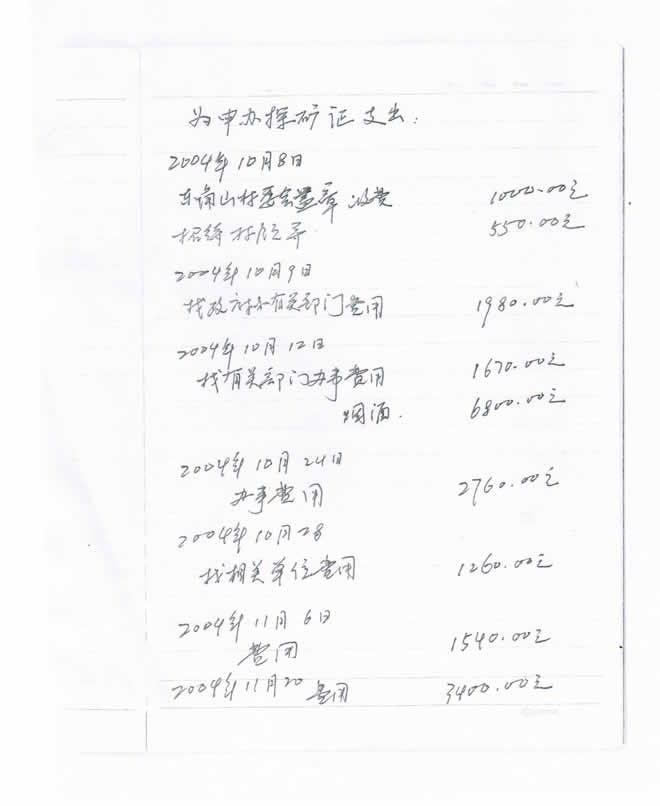 为申办探矿证支出:
2004年10月8日
村委会盖章收费 1000.00元
招待 550.00元
2004年10月9日
找政府和有关部门费用 1980.00元
2004年10月12日
找有关部门办事费用 1670.00元
烟酒. 6800.00元
2004年10月24日
办事费用 2760.00元
2004年10月28
找相关单位费用 1260.00元
2004年11月6日
费用 1540.00元
2004年11月20 费用 3400.00元